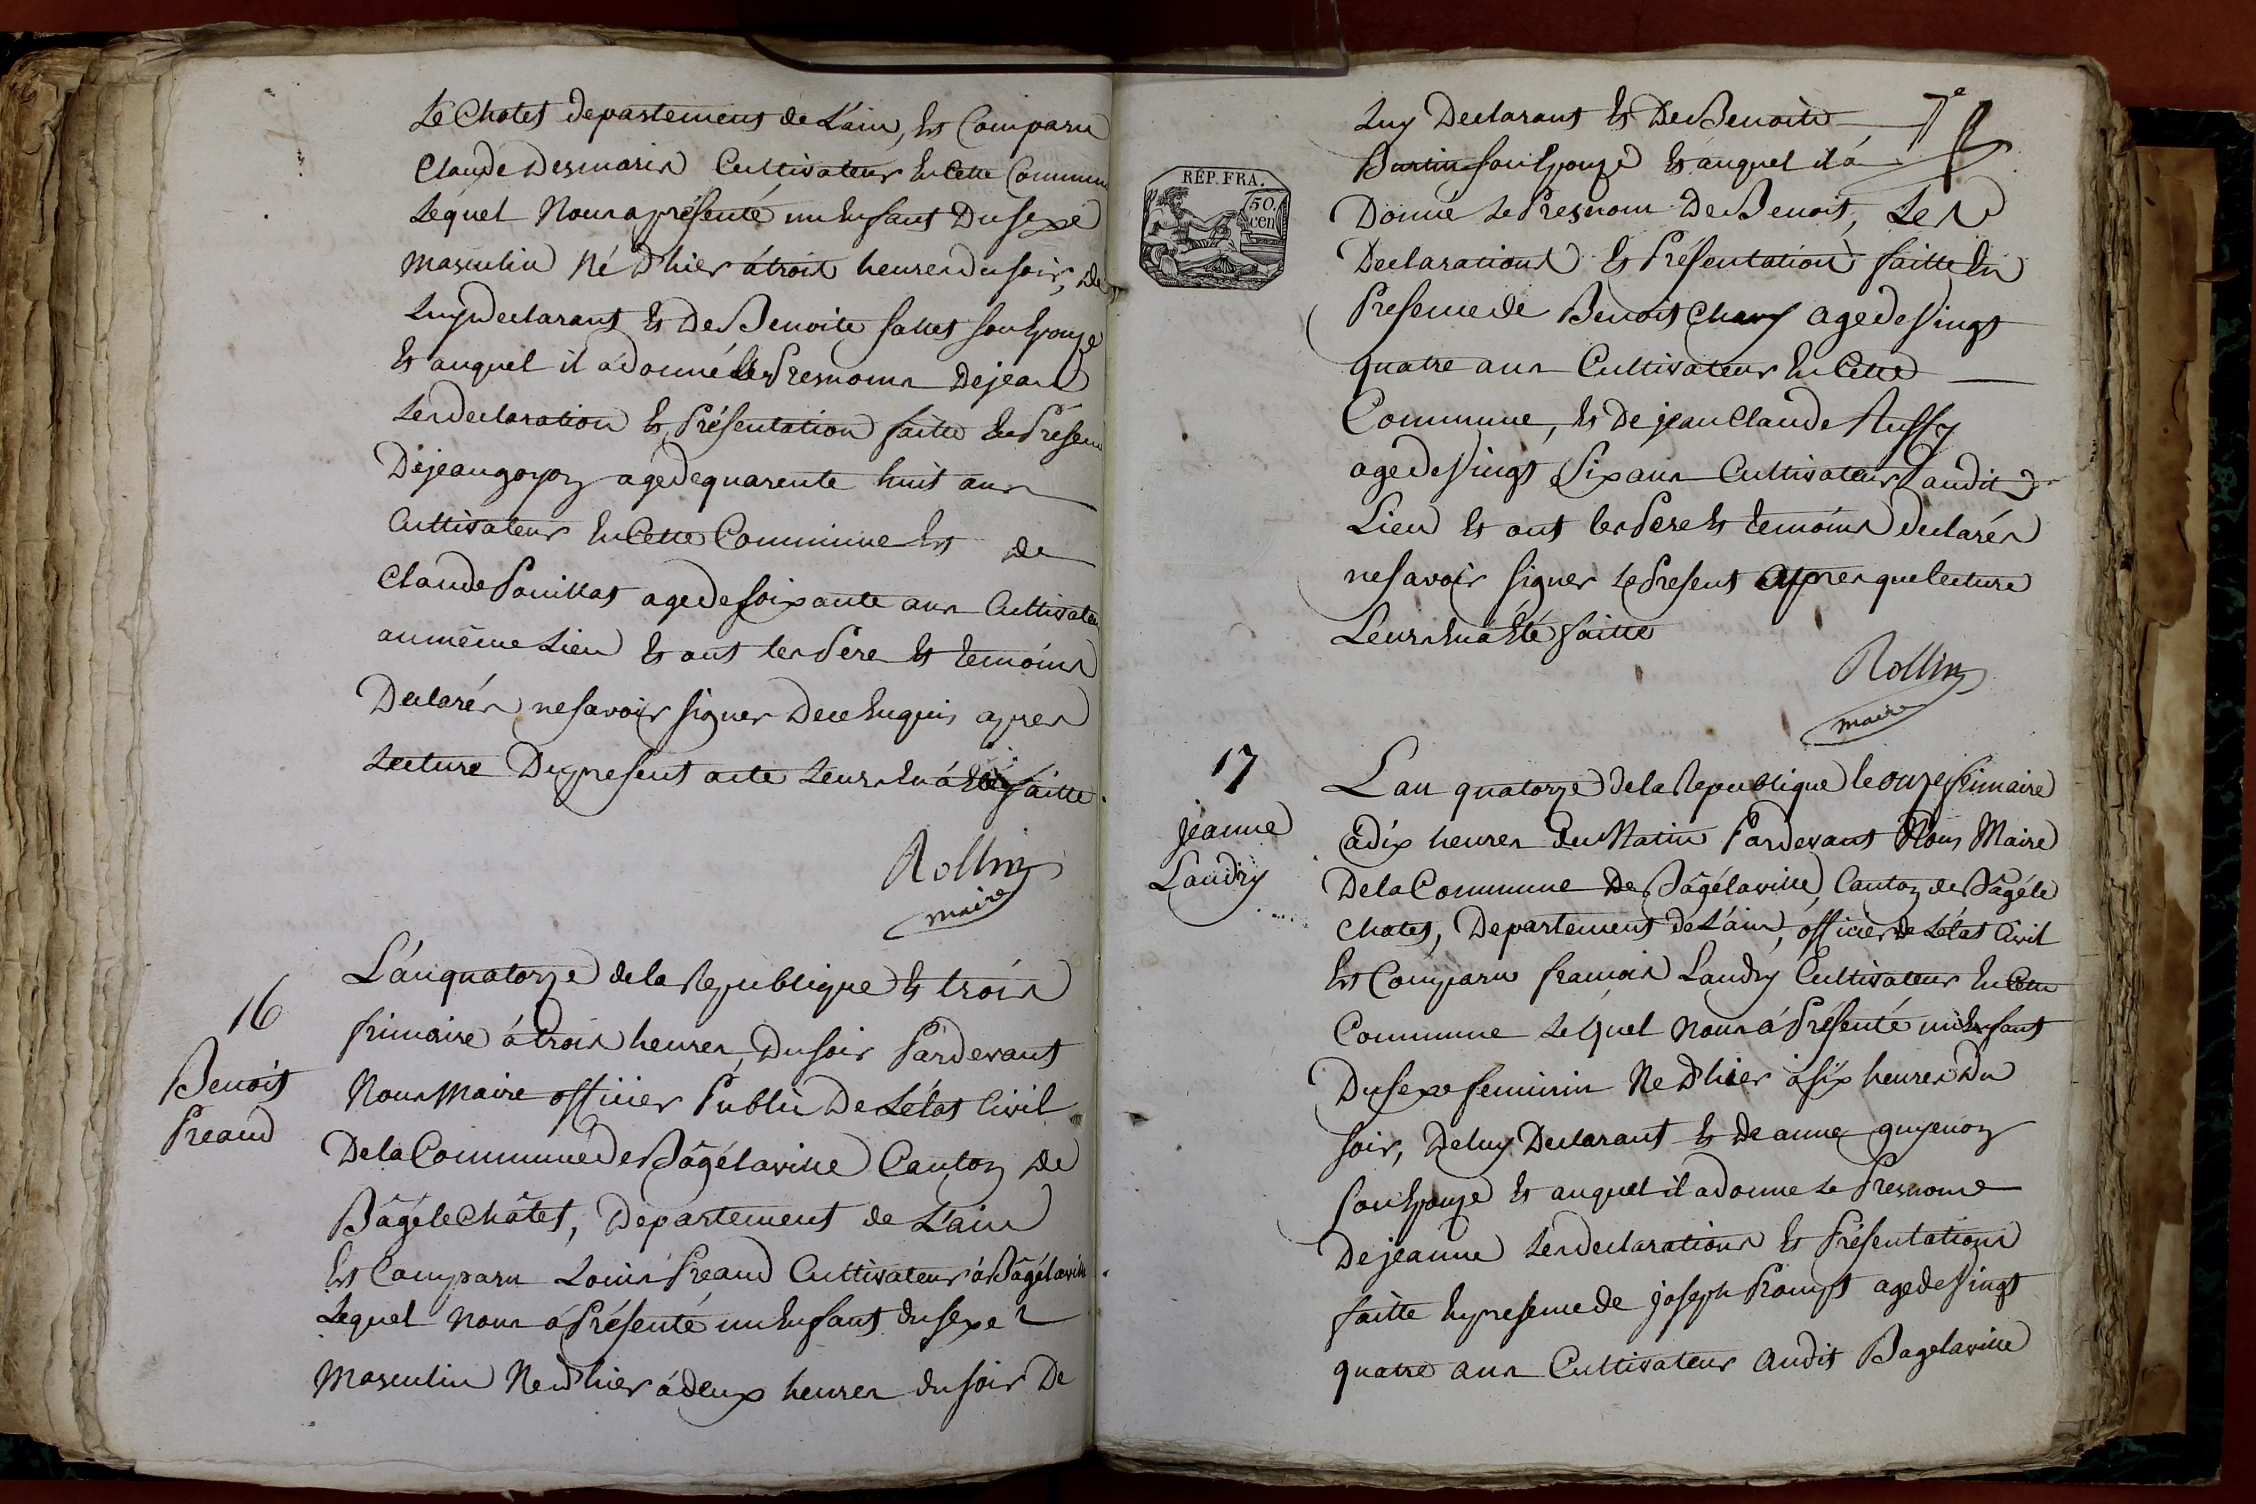 Le Chatel departement de L'ain, Est Comparu
Claude Desmaris Cultivateur En Cette Commune
Lequel Nous a présenté un Enfant Du sexe
masculin Né D'hier à trois heures du soir, De
Luy declarant Et De Benoite fallet son Epouze
Et auquel il a donné les Presnoms De jean
Les declaration Et Présentation faitte En Présence
De jean goyon agé de quarente huit ans
Cultivateur En Cette Commune Et de
Claude Pouillat age de soixante ans Cultivateur
au même Lieu Et ont les Père Et temoins
Declarés ne savoir signer De ce Enquis apres
Lecture Du present acte Leurs En á Eté faitte.
Rollin
maire
16
Benoit
Preaud
L'an quatorze de la Republique Et trois
frimaire á trois heures, Du soir Pardevant
Nous Maire officier Public De L'état Civil
De la Commune de Bâgé la ville Canton De
Bâgé le Châtel, Departement de L'ain
Est Comparu Louis Preaud Cultivateur á Bâgé la ville
Lequel Nous á Présenté un Enfant du sexe
Masculin Né D'hier á deux heures du soir De
7e
RÉP. FRA.
50.
cen
Luy Declarant Et De Benoite
Burtin son Epouze Et auquel il á
Donné Le Presnom De Benoit, Les
Declarations Et Présentation faitte En
Presence de Benoit Chary age de Vingt
quatre ans Cultivateur En Cette
Commune, Et De jean Claude Ruffy
age de Vingt Six ans Cultivateur audit
Lieu Et ont les Pere Et temoins declarés
ne savoir signer Le Present apres que lecture
Leurs En á Eté faitte
Rollin
maire
17
jeanne
Landry
L'an quatorze de la Republique le onze frimaire
á dix heures du Matin Pardevant Nous Maire
De la Commune De Bâgé la ville, Canton de Bâgé le
Chatel, Departement de L'ain, officier de L'état Civil
Est Comparu françois Landry Cultivateur En Cette
Commune Lequel Nous á Présenté un Enfant
Du sexe feminin Né D'hier á six heures Du
soir, De luy Declarant Et de anne guyenon
son Epouze Et auquel il a donne Le Presnome
De jeanne Les declarations Et Présentations
faitte En presence de joseph Prompt age de Vingt
quatre ans Cultivateur Audit Bagé la ville